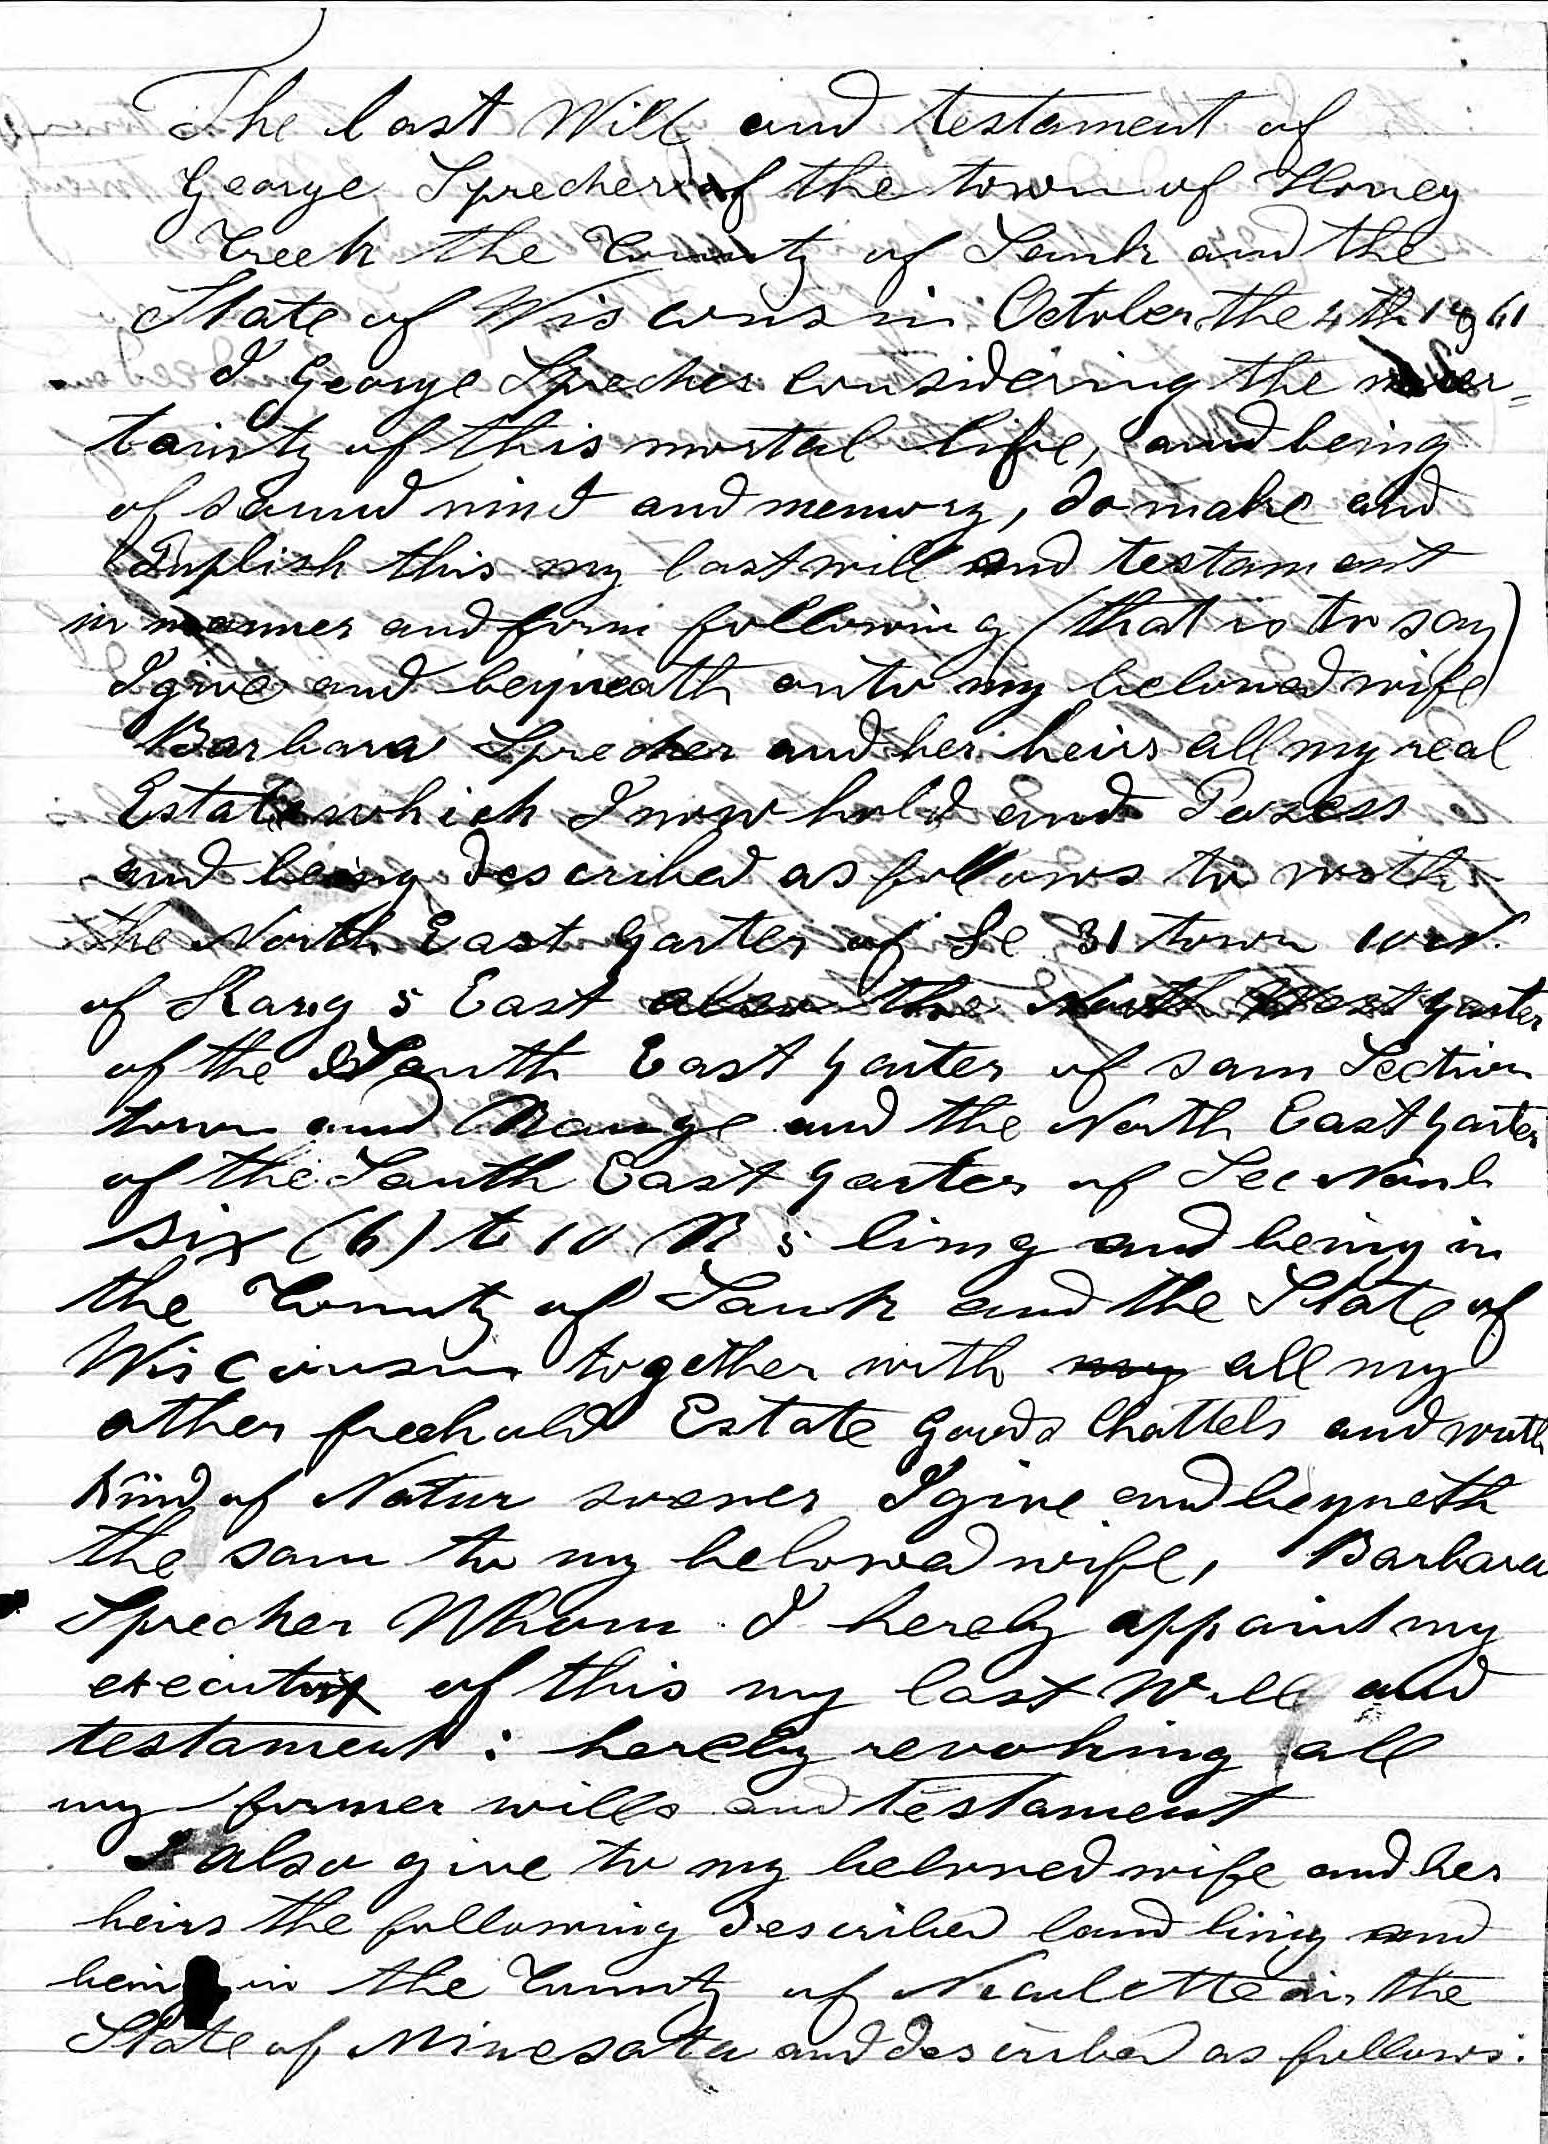 The last Will and testament of
George Sprecher of the town of Honey
Creek the County of Sauk and the
State of Wisconsin October the 4th 1861
I George Sprecher considering the uncer=
tainty of this mortal life, and being
of sound mind and memory, do make and
Puplish this my last will and testament
in manner and form following (that is to say)
I give and bequeath onto my beloved wife
Barbara Sprecher and her heirs all my real
Estate which I now hold and Posess
and being described as follows to with
the North East Qarter of Se 31 town 10 N.
of Rang 5 East also the North West qarter
of the South East qarter of sam Section
town and Range and the North East qarter
of the South East qarter of Sec Nomb
six (6) t 10 R 5 ling and being in
the County of Sauk and the State of
Wisconsin together with my all my
other freehold Estate Goods Chattels and wath
Kind of Natur soever I give and beqneth
the sam to my beloved wife, Barbara
Sprecher Whom I hereby appoint my
executrix of this my last Will and
testament : hereby revoking all
my former wills and testament
I also give to my beloved wife and her
heirs the following described land ling and
being in the County of Nicolette in the
State of Minesota and described as follows: